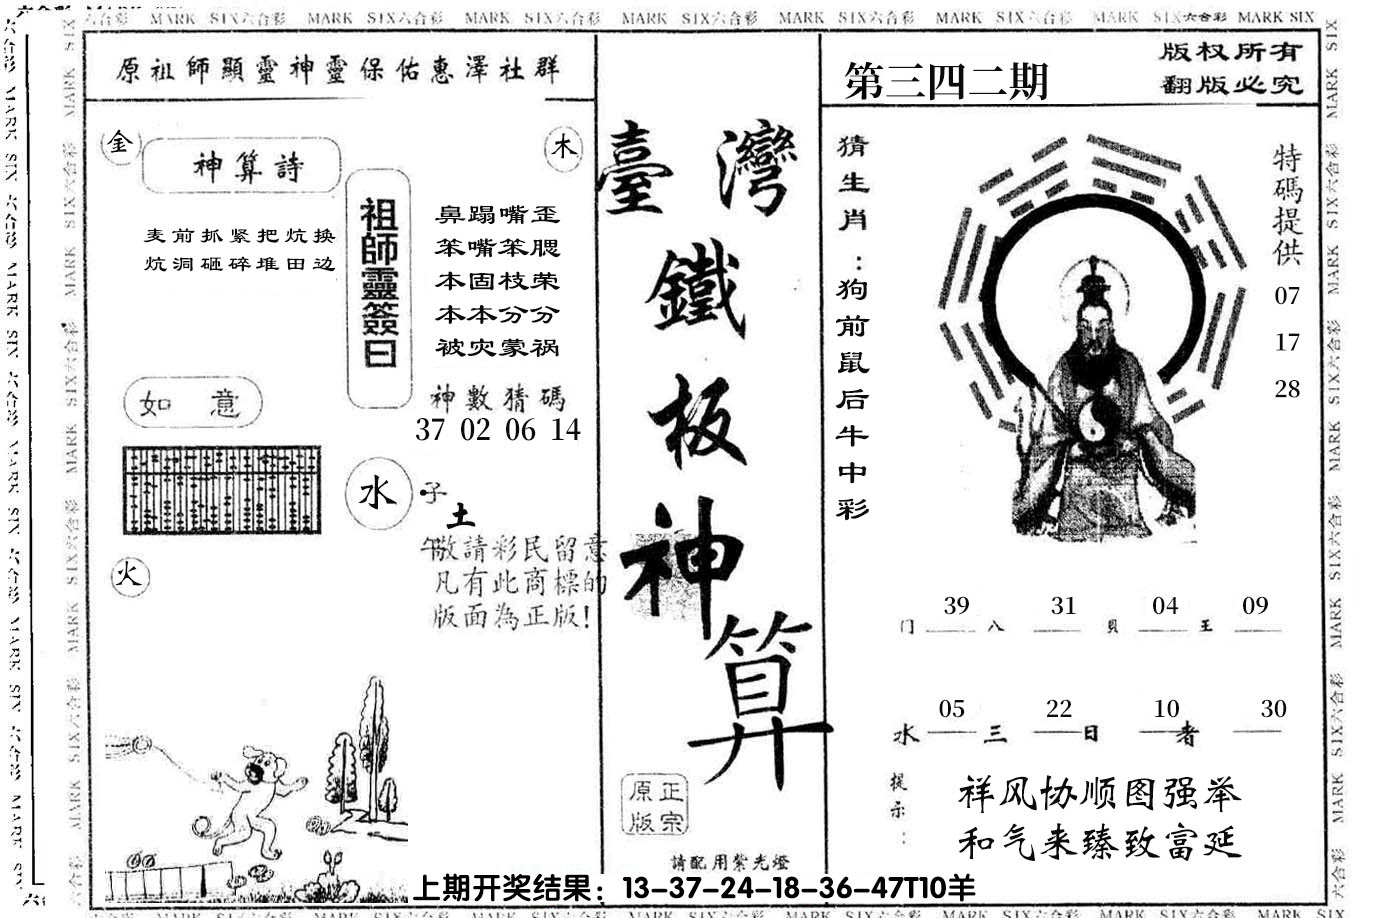 MARK SIX六合彩 MARK SIX六合彩 MARK SIX六合彩 MARK SIX六合彩 MARK SIX六合彩 MARK SIX六合彩 MARK SIX六合彩 MARK SIX
原祖師顯靈神靈保佑惠澤社群
金
木
神算詩
麦前抓紧把炕换
炕洞砸碎堆田边
祖師靈簽曰
鼻蹋嘴歪
笨嘴笨腮
本固枝荣
本本分分
被灾蒙祸
神數猜碼
37 02 06 14
如 意
水
子
土
午
火
敬請彩民留意
凡有此商標的
版面為正版!
臺灣
鐵
板
神
算
正宗
原版
請配用紫光燈
第三四二期
版权所有
翻版必究
猜生肖:狗前鼠后牛中彩
特碼提供
07
17
28
39 31 04 09
门 八 贝 王
05 22 10 30
水 三 日 者
提示:
祥风协顺图强举
和气来臻致富延
上期开奖结果：13-37-24-18-36-47T10羊